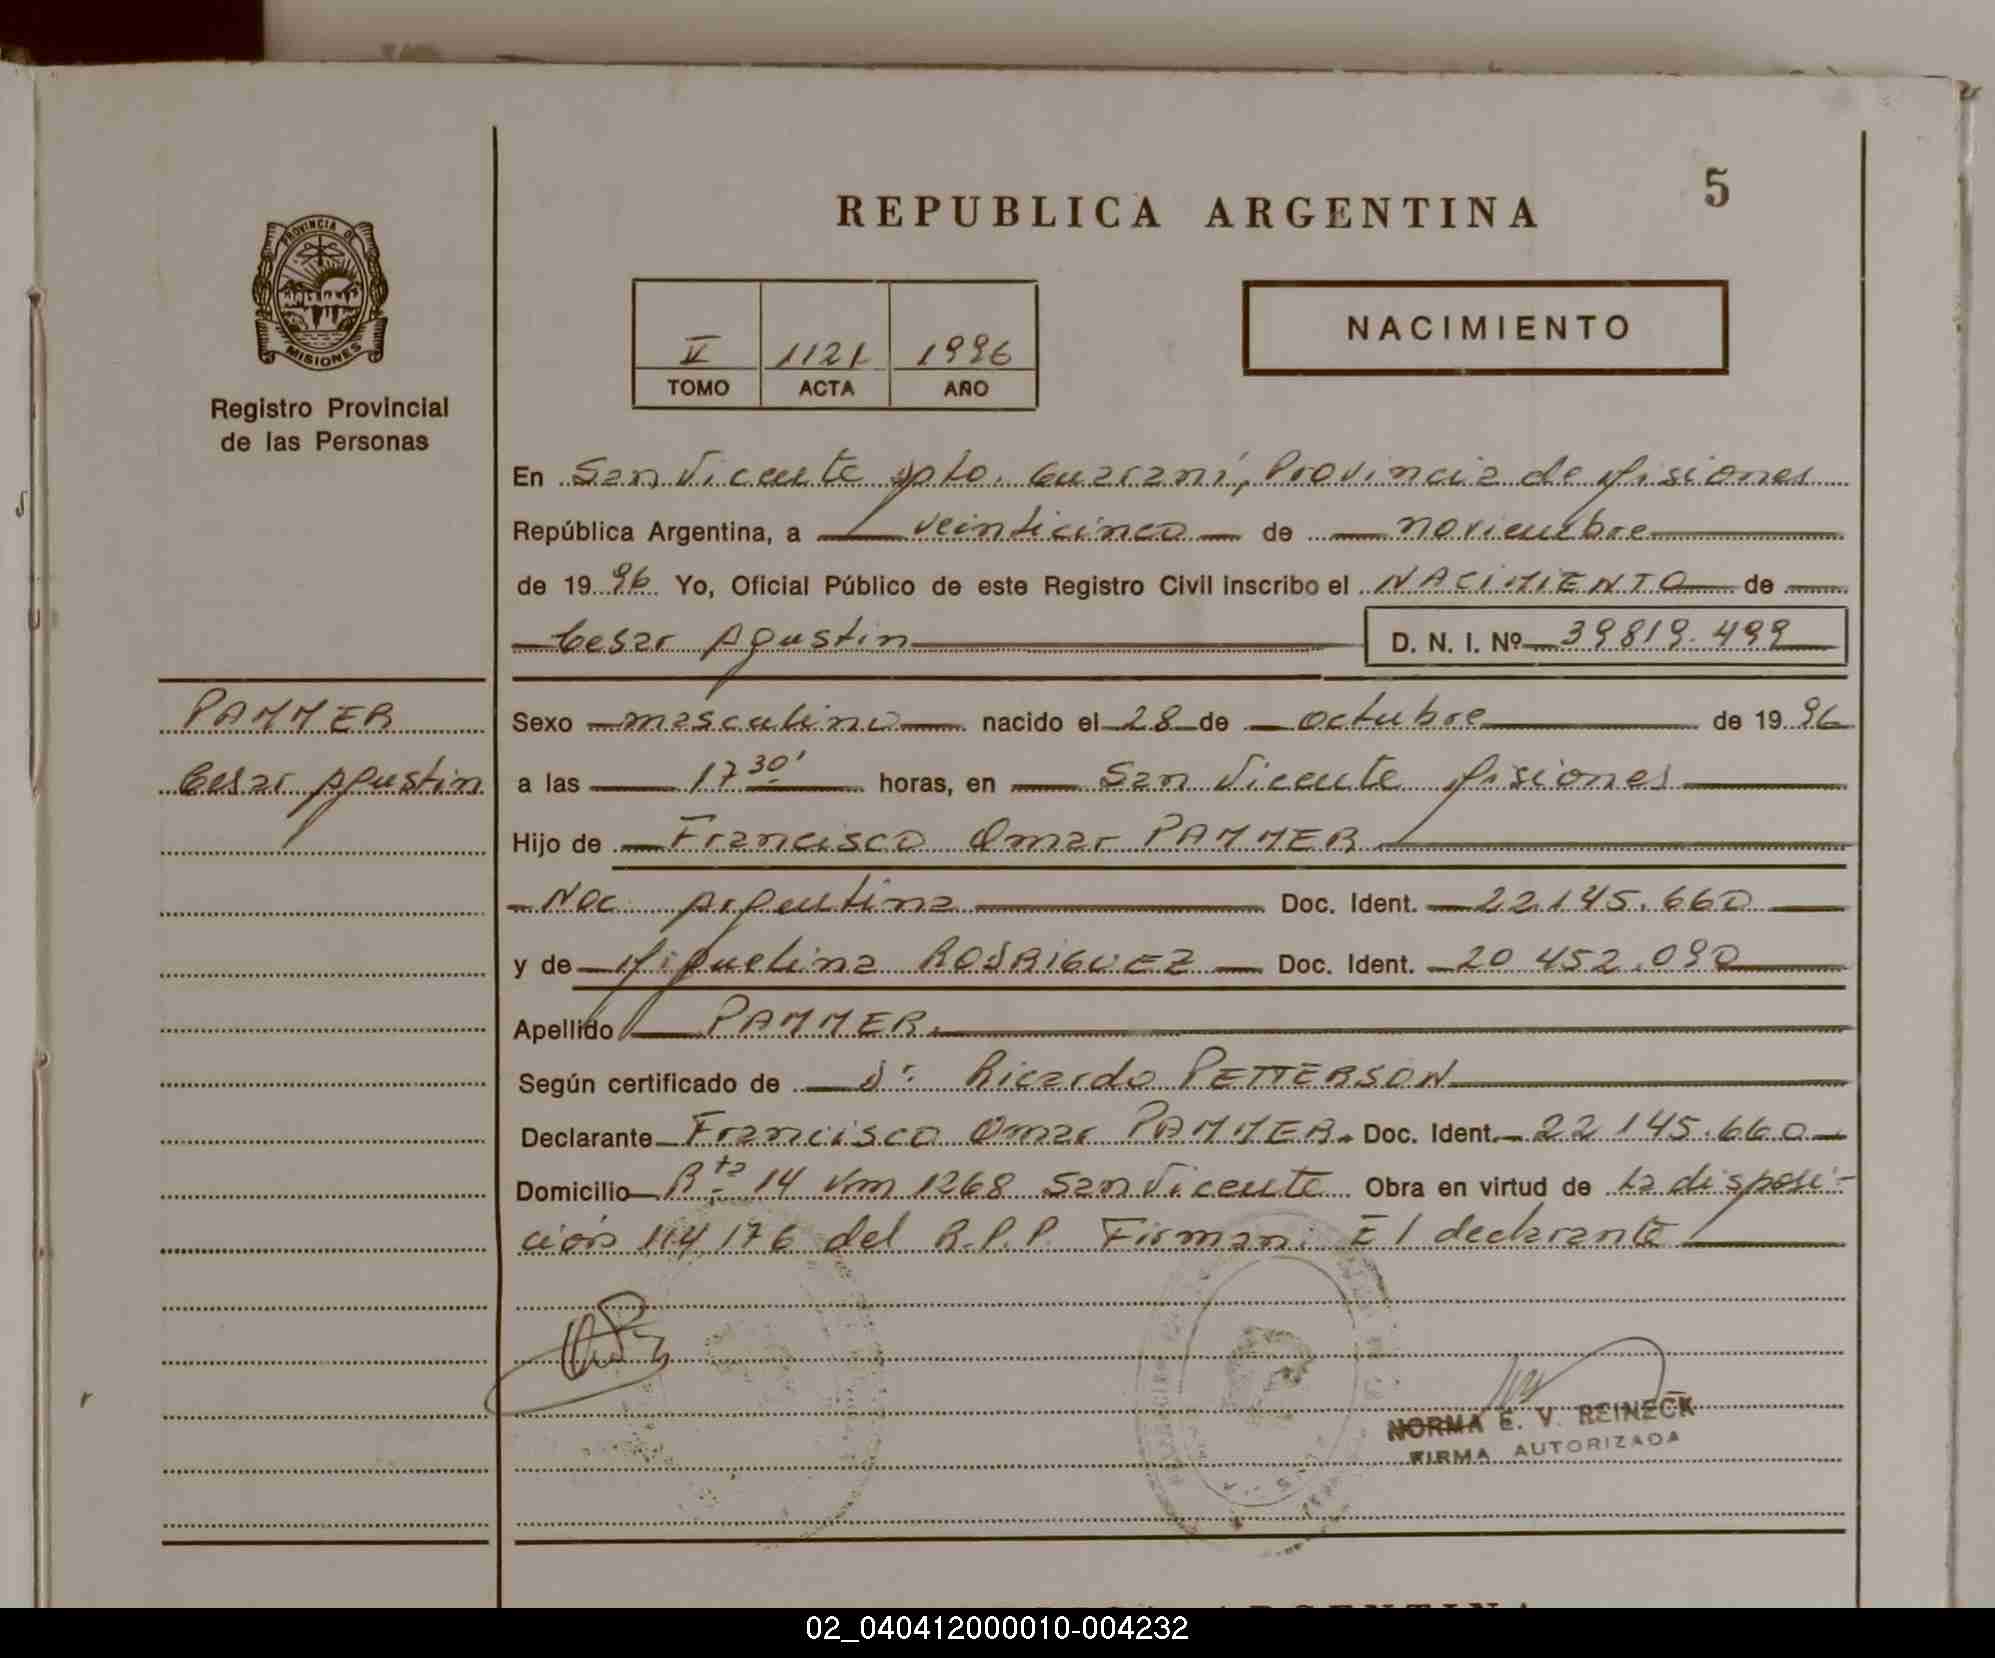 5
REPUBLICA ARGENTINA
PROVINCIA DE
MISIONES
Registro Provincial
de las Personas
V 1121 1996
TOMO ACTA AÑO
NACIMIENTO
En San Vicente Dpto. Guaraní, Provincia de Misiones
República Argentina, a veinticinco de noviembre
de 1996 Yo, Oficial Público de este Registro Civil inscribo el NACIMIENTO de
Cesar Agustin D. N. I. Nº 39819.499
PAMMER
Cesar Agustin
Sexo masculino nacido el 28 de octubre de 1996
a las 17 30' horas, en San Vicente Misiones
Hijo de Francisco Omar PAMMER
Nac. Argentina Doc. Ident. 22.145.660
y de Miguelina RODRIGUEZ Doc. Ident. 20 452.090
Apellido PAMMER.
Según certificado de Dr. Ricardo PETTERSON
Declarante Francisco Omar PAMMER. Doc. Ident. 22 145.660
Domicilio Rta 14 Km 1268 San Vicente Obra en virtud de la disposi-
ción 114 176 del R.P.P. Firman: El declarante
NORMA E. V. REINECK
FIRMA AUTORIZADA
02_040412000010-004232